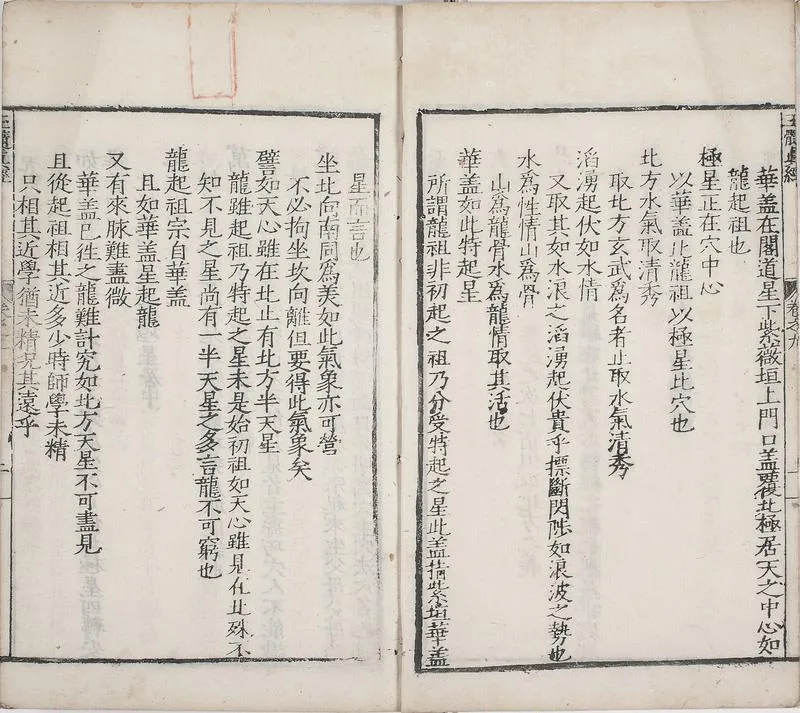 華盖在閣道星下紫薇垣上門口盖覆北極居天之中心如
龍起祖也
極星正在穴中心
以華盖比龍祖以極星比穴也
北方水氣取清秀
取北方玄武爲名者止取水氣清秀
滔湧起伏如水情
又取其如水浪之滔湧起伏貴乎摽斷閃陟如浪波之勢也
水爲性情山爲骨
山爲龍骨水爲龍情取其活也
華盖如此特起星
所謂龍祖非初起之祖乃分受特起之星此盖指紫垣華盖
星而言也
坐北向南同爲美如此氣象亦可營
不必拘坐坎向離但要得此氣象矣
譬如天心雖在北止有北方半天星
龍雖起祖乃特起之星未是始初祖如天心雖是在北殊不
知不見之星尚有一半天星之多言龍不可窮也
龍起祖宗自華盖
且如華盖星起龍
又有來脉難盡微
華盖已徃之龍難計究如北方天星不可盡見
且從起祖相其近多少時師學未精
只相其近學猶未精况其遠乎
玉髓真經
卷之九
玉髓真經